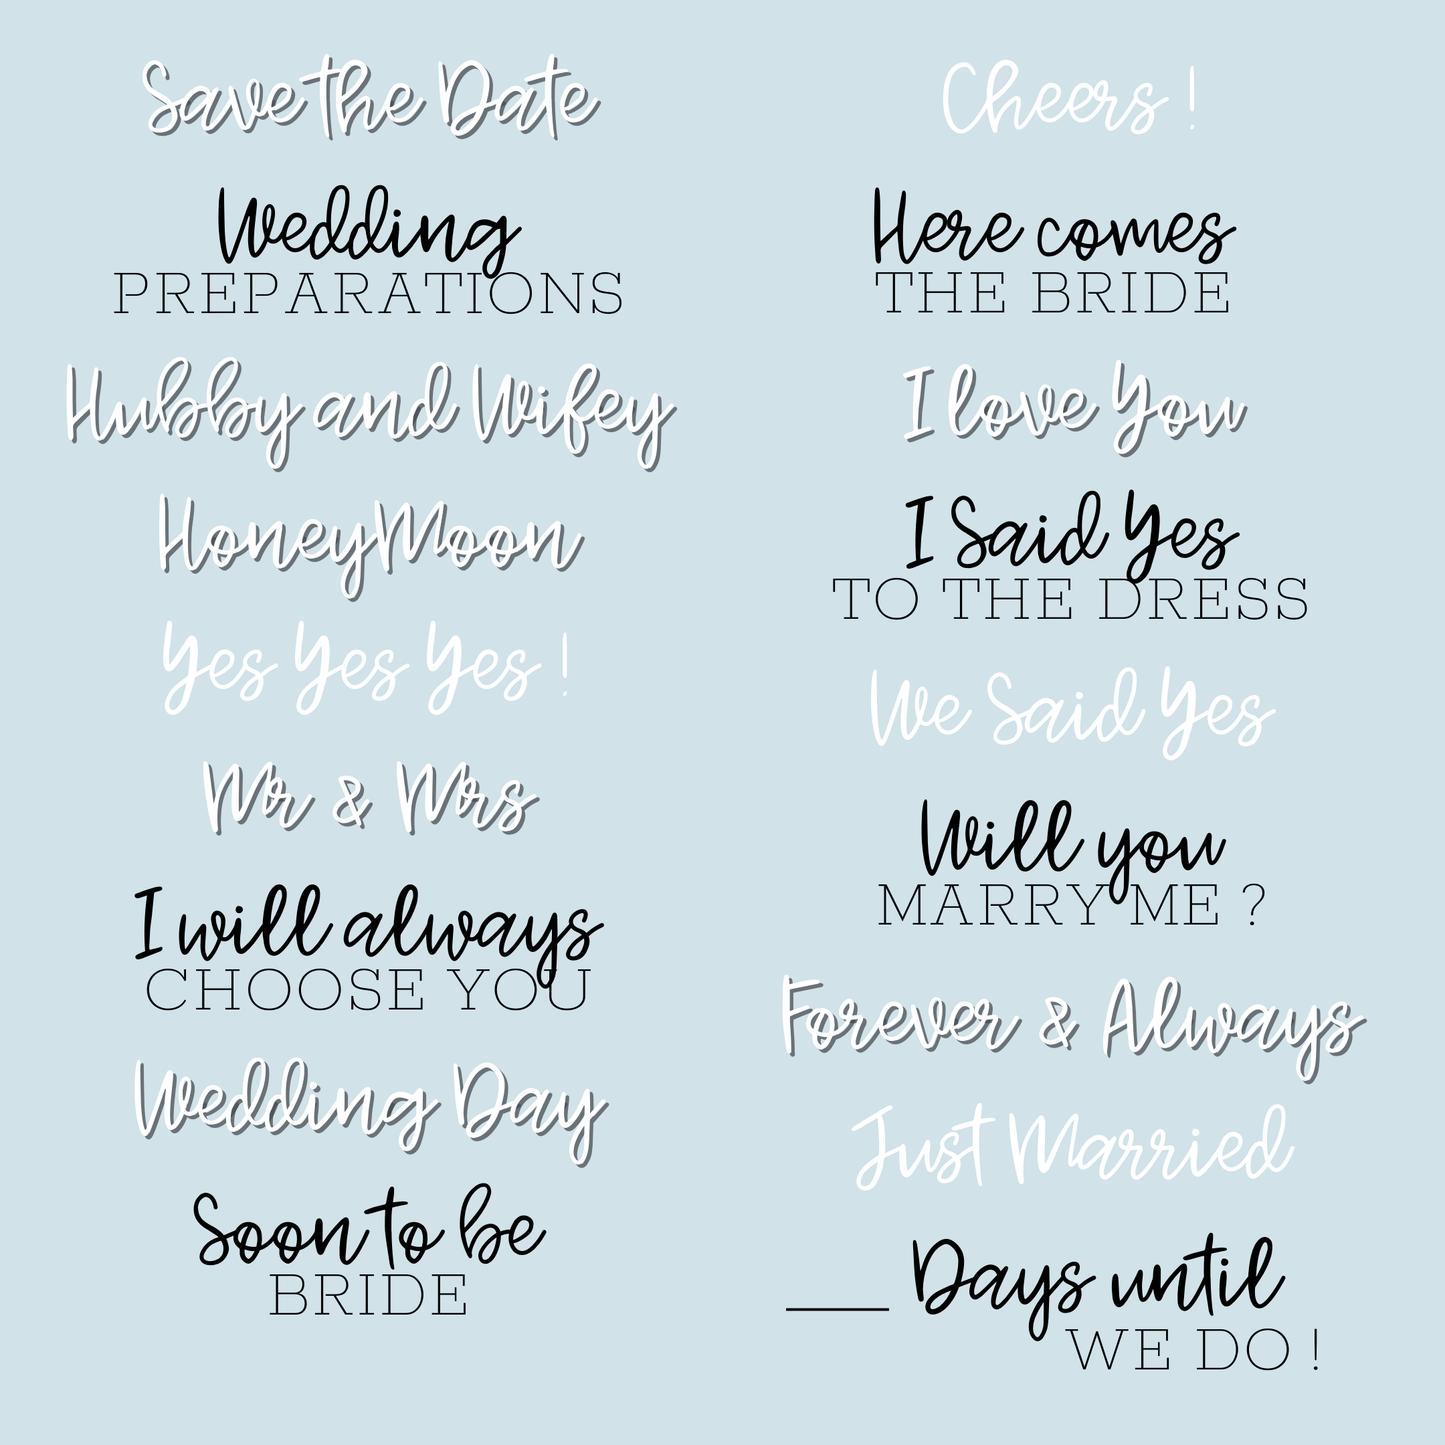 Save the Date
Wedding
PREPARATIONS
Hubby and Wifey
HoneyMoon
Yes Yes Yes !
Mr & Mrs
I will always
CHOOSE YOU
Wedding Day
Soon to be
BRIDE
Cheers !
Here comes
THE BRIDE
I love You
I Said Yes
TO THE DRESS
We Said Yes
Will you
MARRY ME ?
Forever & Always
Just Married
____ Days until
WE DO !